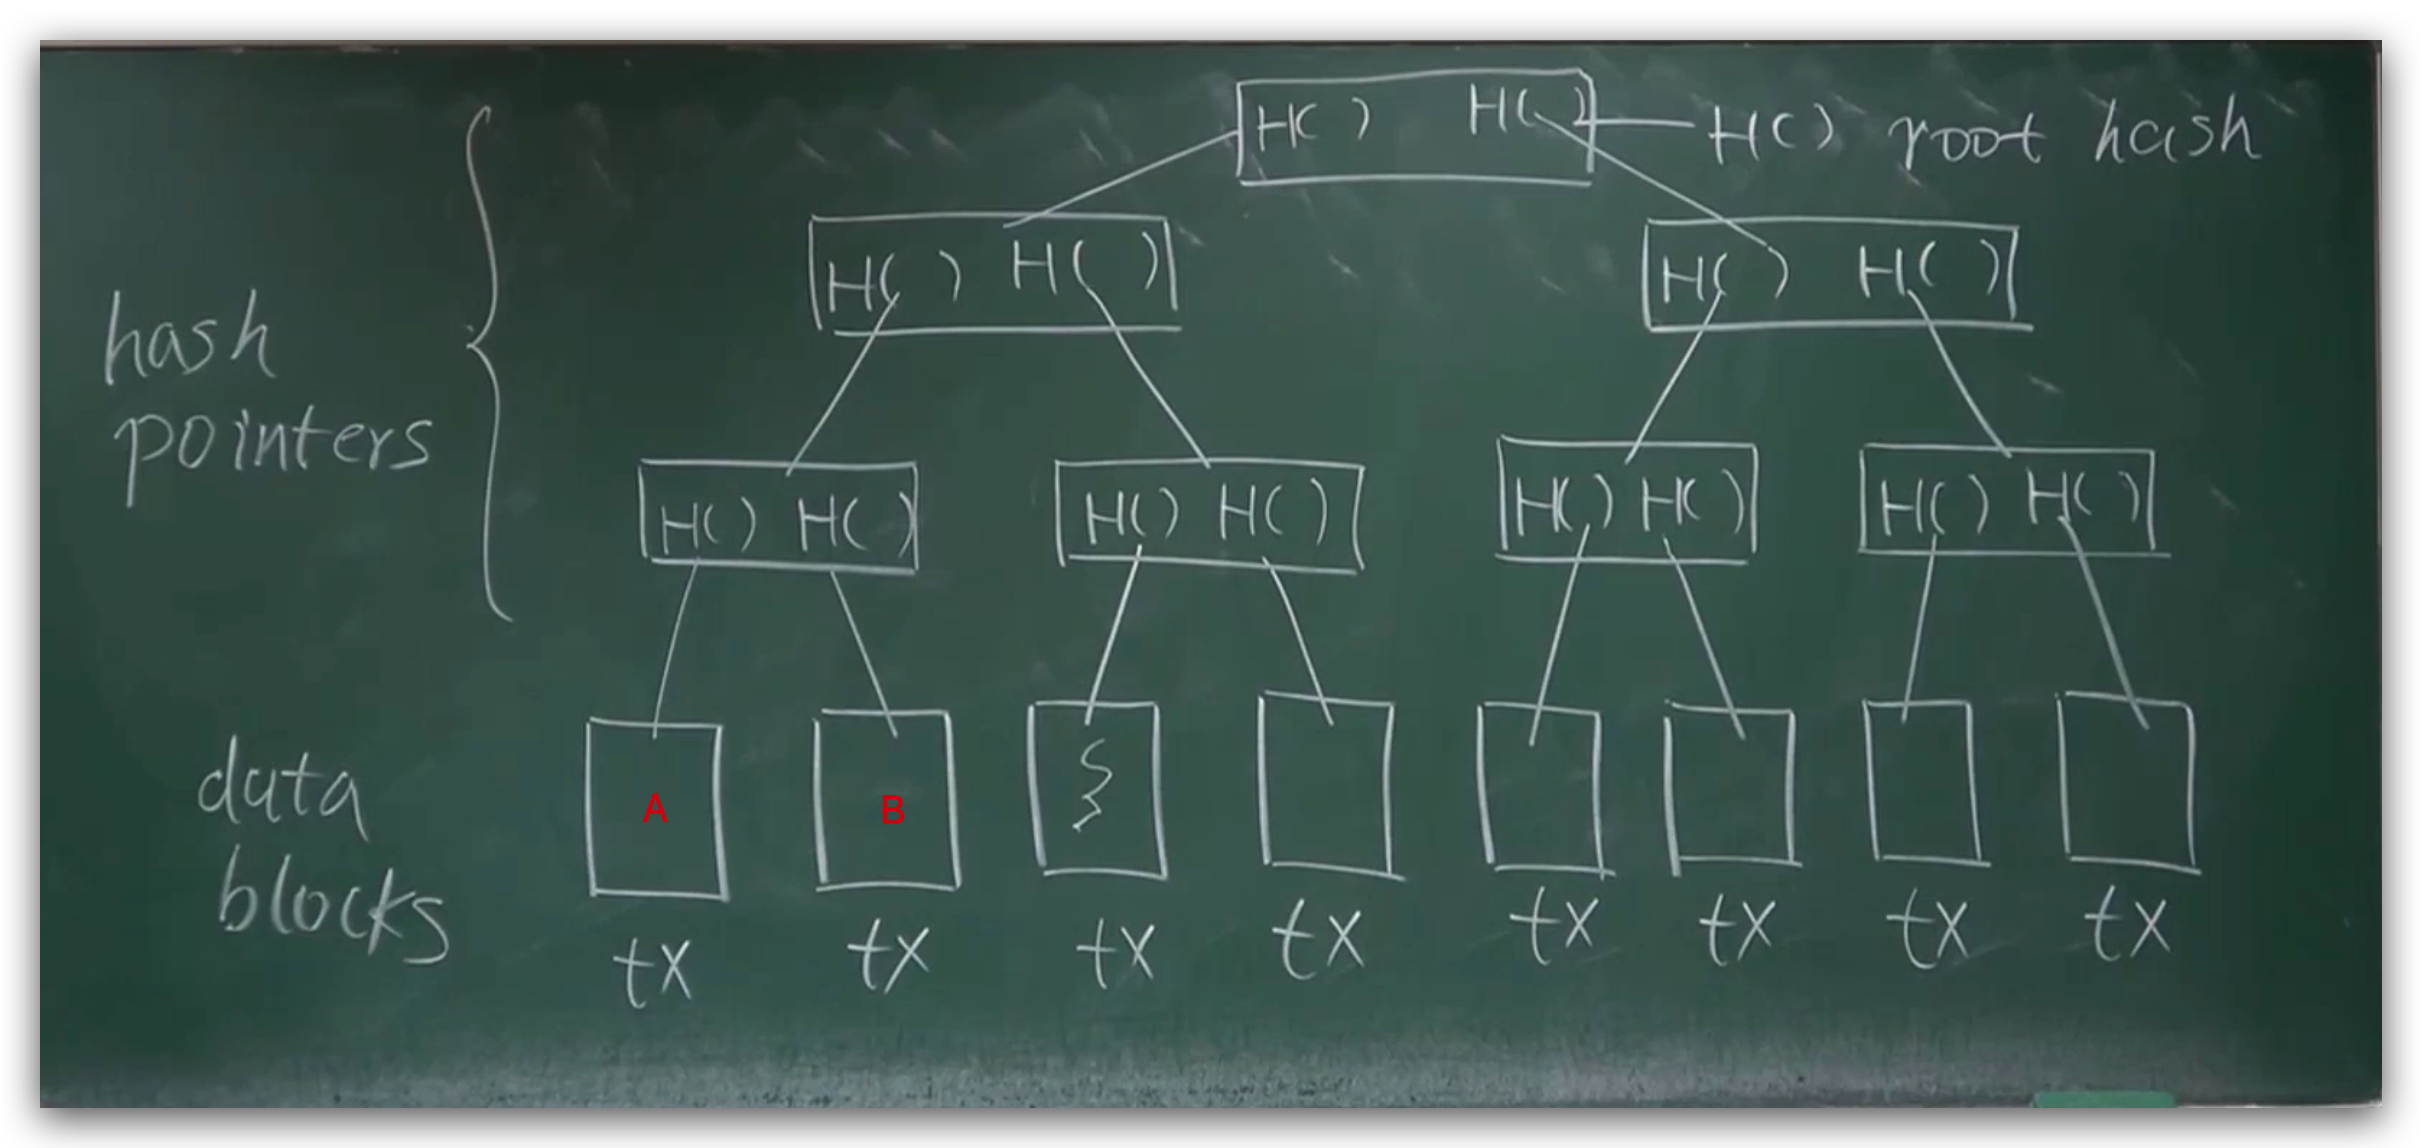 H() H() H() root hash
H() H() H() H()
hash
pointers
H() H() H() H() H() H() H() H()
data
blocks
A B
tx tx tx tx tx tx tx tx